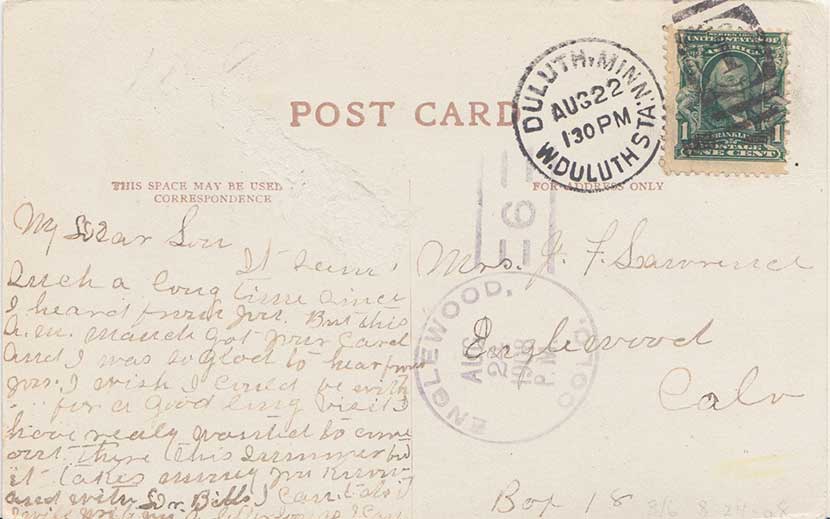 POST CARD
DULUTH, MINN.
AUG 22
130 PM
W. DULUTH STA.
UNITED STATES OF
AMERICA
1 1
FRANKLIN
POSTAGE
ONE CENT
THIS SPACE MAY BE USED
CORRESPONDENCE
FOR ADDRESS ONLY
My Dear Lou
It seems
such a long time since
I heard from you. But this
a.m. got your card
and I was so glad to hear from
you. I wish I could be with
for a good long visit I
have realy wanted to come
out there this summer but
it takes money you know
and with Dr. Bills I can't do it
Mrs. J. F. Lawrence
Englewood
Colo
Box 18
ENGLEWOOD, COLO.
AUG
24
1908
P.M.
8-24-08